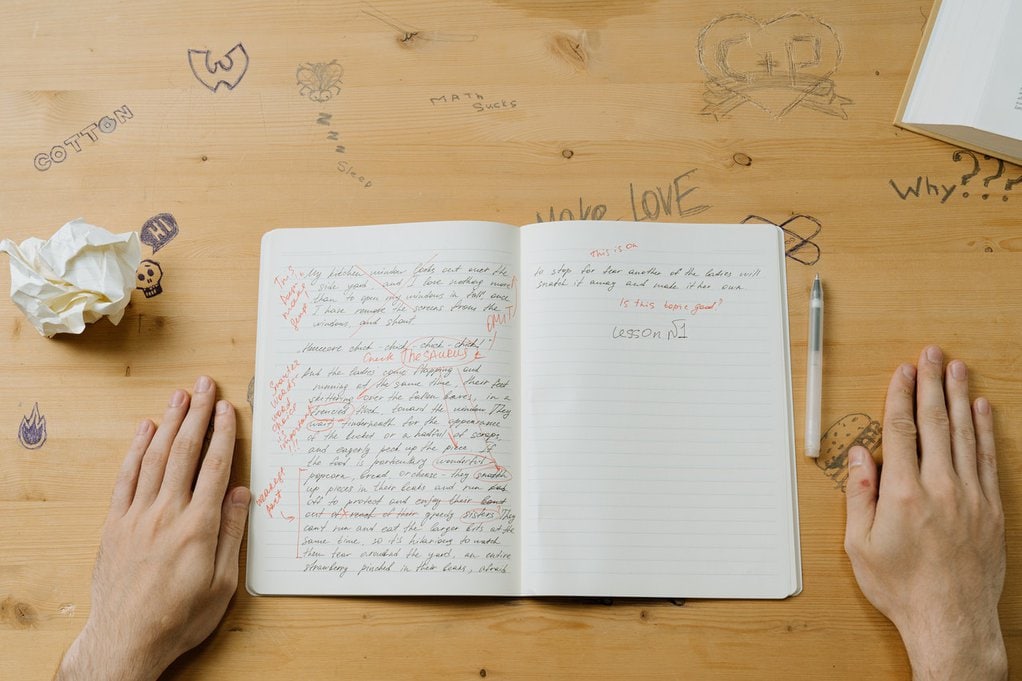 W
COTTON
ZZZZ
Sleep
MATH
Sucks
C+P
Why???
Make LOVE
HI
My kitchen window looks out over the
side yard, and I love nothing more
than to open my windows in fall, once
I have remove the screens from the
windows, and shout.
Heeeere chick-chick, chick-chick!
Check THESAURUS
And the ladies come flapping and
running at the same time, their feet
skittering over the fallen leaves, in a
frenzied flock, toward the window. They
wait underneath for the appearance
of the bucket or a handful of scraps,
and eagerly peck up the piece. If
the food is particulary wonderful
popcorn, bread, or cheese - they snatch
up pieces in their beaks and run
off to protect and enjoy their
out of reach of their greedy sisters. They
cant run and eat the larger bits at the
same time, so it's hilarious to watch
them tear around the yard, an entire
strawberry pinched in their beaks, afraid
OMIT!
Smarter
words
word
choice
important
weakest
part
This is ok
to stop for fear another of the ladies will
snatch it away and make it her own.
Is this topic good?
Lesson №1